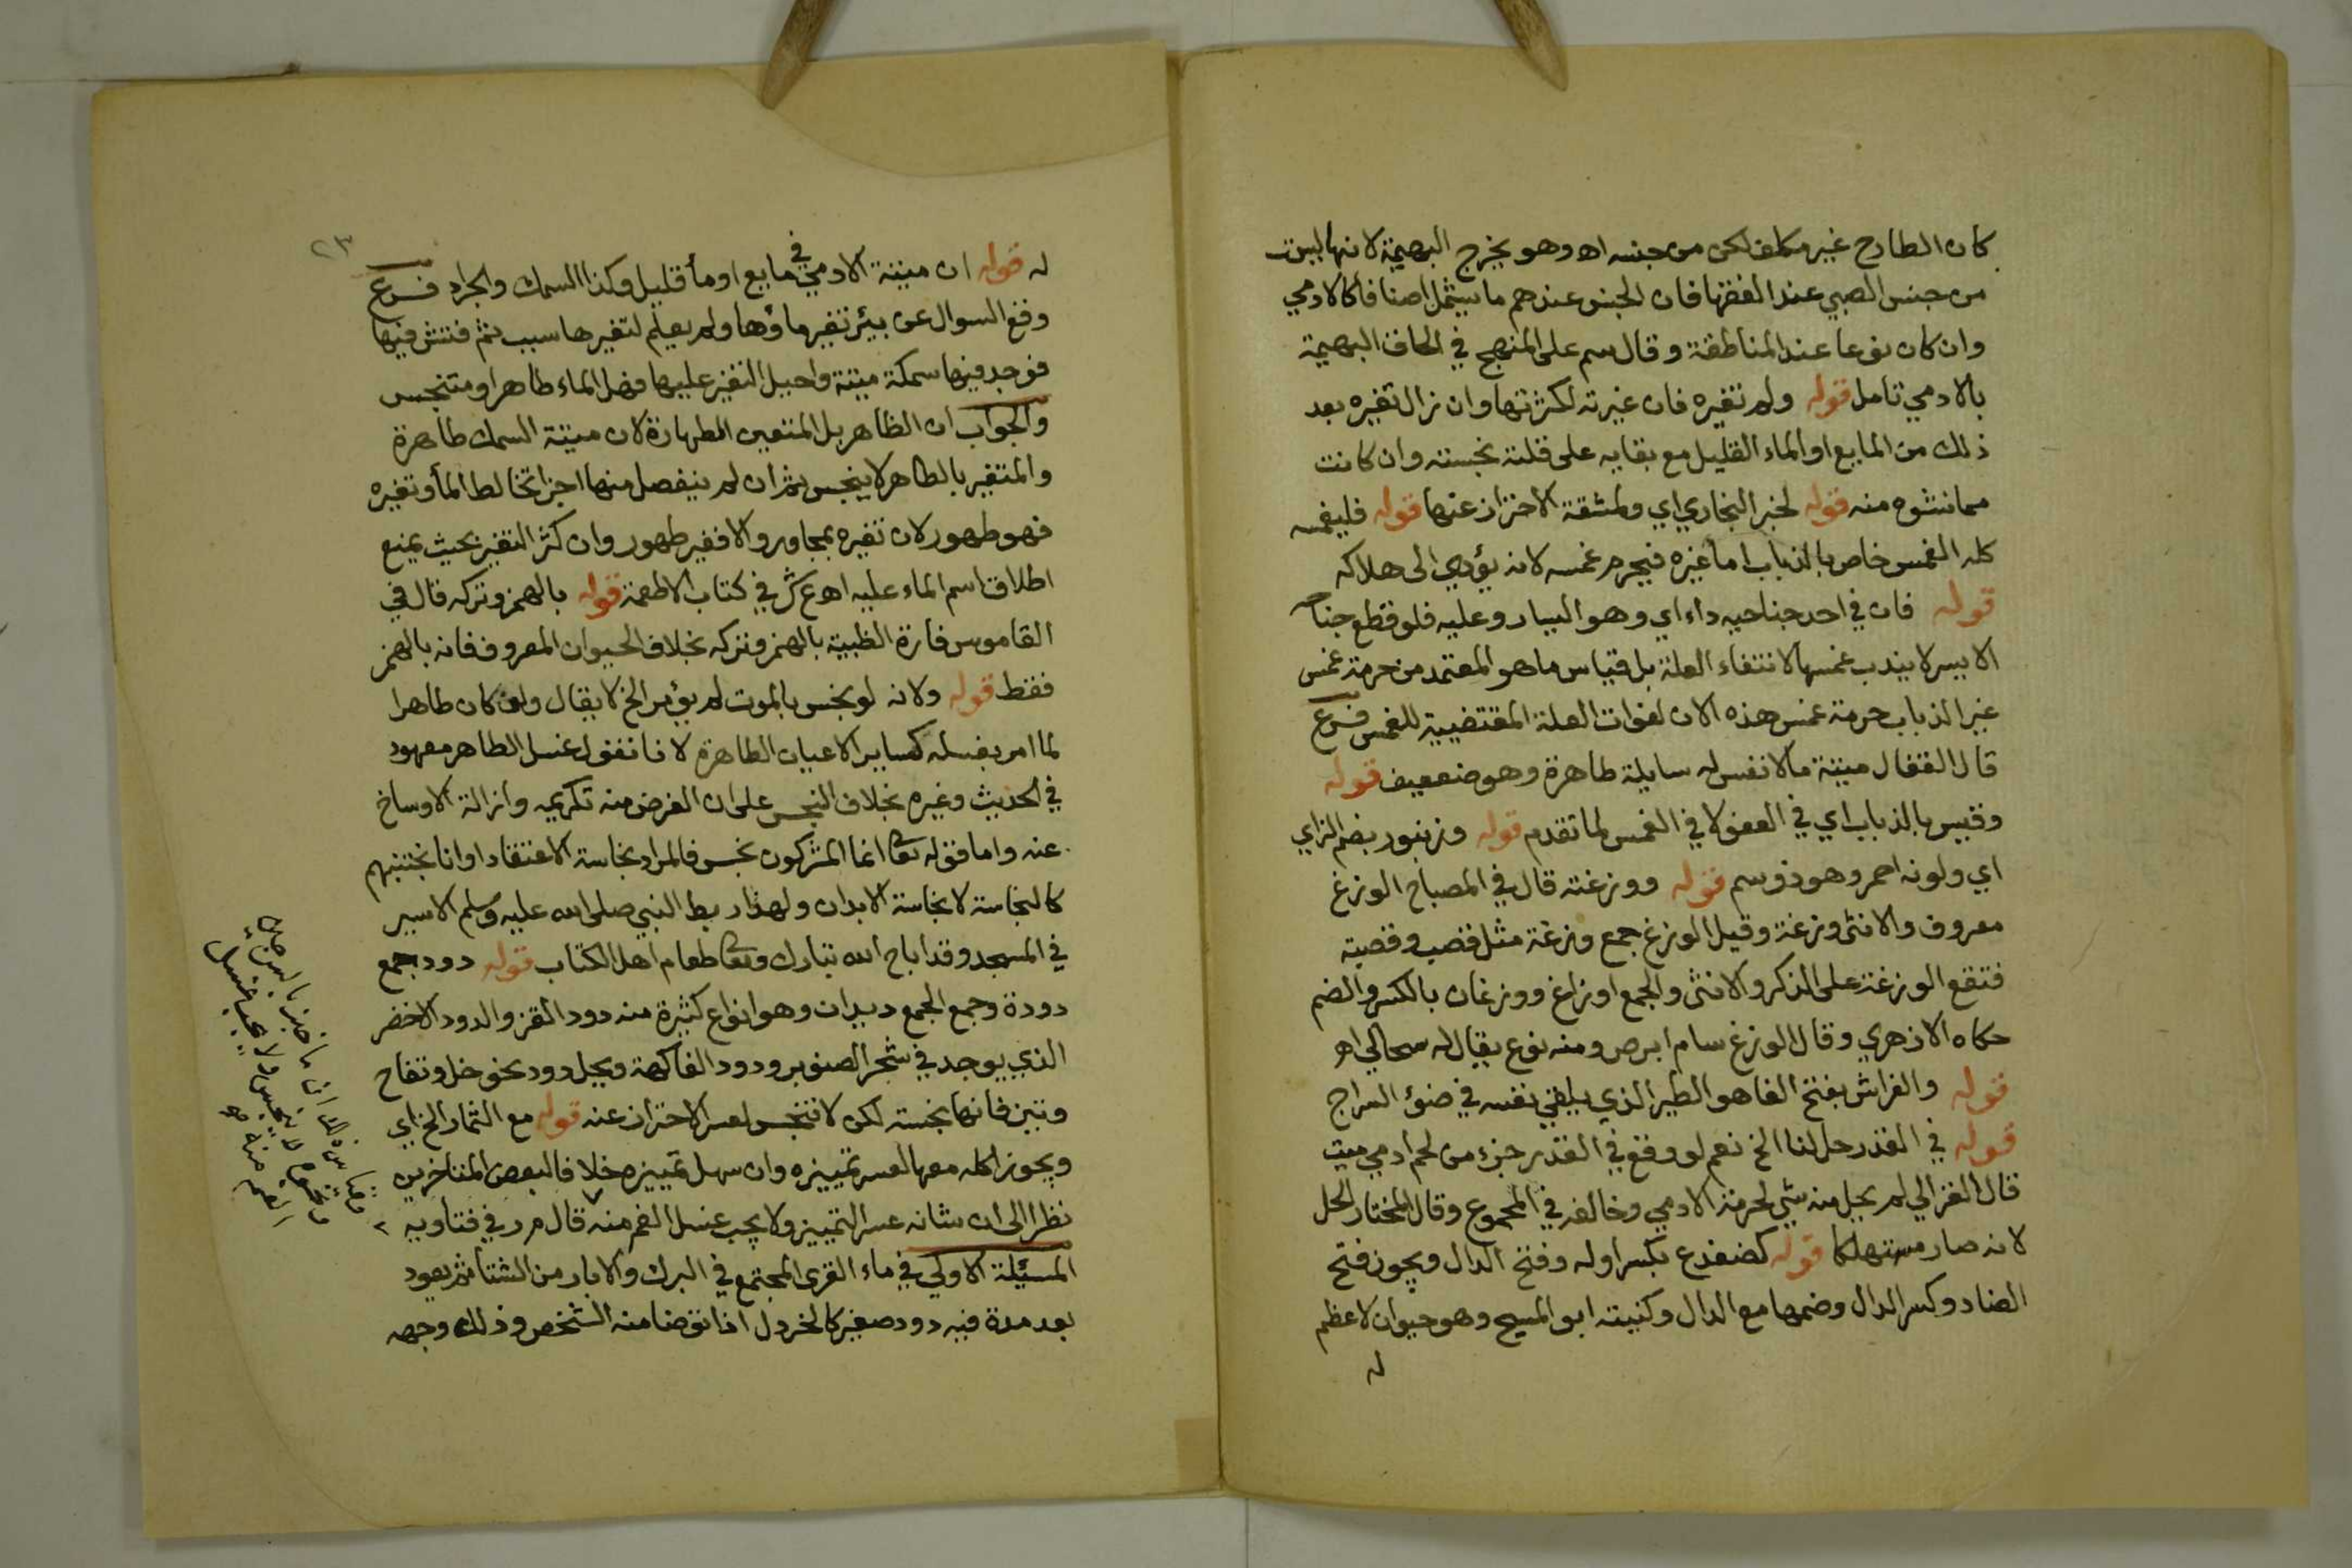 كان الطارح غير مكلف لكن من جنسه اه وهو يخرج البهيمة لانها ليست
من جنس الصبي عند الفقها فان الجنس عندهم ما يشمل اصنافا كالادمي
وان كان نوعا عند المناطقة وقال سم على المنهج في الحاق البهيمة
بالادمي تامل قوله ولم تغيره فان غيرته لكثرتها وان زال تغيره بعد
ذلك من المايع او الماء القليل مع بقايه على قلته نجسته وان كانت
مما نشوه منه قوله لخبر البخاري اي ولمشقة الاحتراز عنها قوله فليغمسه
كله الغمس خاص بالذباب اما غيره فيحرم غمسه لانه يؤدي الى هلاكه
قوله فان في احد جناحيه داء اي وهو اليسار وعليه فلو قطع جناحه
الايسر لا يندب غمسه لانتفاء العلة بل قياس ما هو المعتمد من حرمة غمس
غير الذباب حرمة غمس هذه الان لفوات العلة المقتضيية للغمس فرع
قال القفال ميتة ما لا نفس له سايلة طاهرة وهو ضعيف قوله
وقيس بالذباب اي في العفو لا في الغمس لما تقدم قوله وزنبور بضم الزاي
اي ولونه احمر وهو ذو سم قوله ووزغة قال في المصباح الوزغ
معروف والانثى وزغة وقيل الوزغ جمع وزغة مثل قصب وقصبة
فتقع الوزغة على الذكر والانثى والجمع اوزاغ ووزغان بالكسر والضم
حكاه الازهري وقال الوزغ سام ابرص ومنه نوع يقال له سحالي اه
قوله والفراش بفتح الفا هو الطير الذي يلقي نفسه في ضوء السراج
قوله في القدر حل لنا الخ نعم لو وقع في القدر جزء من لحم ادمي ميت
قال الغزالي لم يحل منه شي لحرمة الادمي وخالفه في المجموع وقال المختار الحل
لانه صار مستهلكا قوله كضفدع بكسر اوله وفتح الدال ويجوز فتح
الضاد وكسر الدال وضمها مع الدال وكنيته ابو المسيح وهو حيوان لا عظم
له
٢٣
له قوله ان ميتة الادمي في مايع او ما قليل وكذا السمك والجراد فرع
وقع السوال عن بيئر تغير ماؤها ولم يعلم لتغيرها سبب ثم فتش فيها
فوجد فيها سمكة ميتة واحيل التغير عليها فهل الماء طاهر او متنجس
والجواب ان الظاهر بل المتعين الطهارة لان ميتة السمك طاهرة
والمتغير بالطاهر لا ينجس ثم ان لم ينفصل منها اجزا تخالط الما وتغيره
فهو طهور لان تغيره بمجاور والا فغير طهور وان كثر التغير بحيث يمنع
اطلاق اسم الماء عليه اه ع ش في كتاب الاطعمة قوله بالهمز وتركه قال في
القاموس فارة الظبية بالهمز وتركه بخلاف الحيوان المعروف فانه بالهمز
فقط قوله ولانه لو نجس بالموت لم يؤمر الخ لا يقال ولو كان طاهرا
لما امر بغسله كساير الاعيان الطاهرة لانا نقول غسل الطاهر معهود
في الحديث وغيره بخلاف النجس على ان الغرض منه تكريمه وازالة الاوساخ
عنه واما قوله تعا انما المشركون نجس فالمراد نجاسة الاعتقاد او انا نجتنبهم
كالنجاسة لا نجاسة الابدان ولهذا ربط النبي صلى الله عليه وسلم الاسير
في المسجد وقد اباح الله تبارك وتعا طعام اهل الكتاب قوله دود جمع
دودة وجمع الجمع ديدان وهو انواع كثيرة منه دود القز والدود الاخضر
الذي يوجد في شجر الصنوبر ودود الفاكهة ويحل دود نحو خل وتفاح
وتبن فانها نجسته لكن لا تنجس لعسر الاحتراز عنه قوله مع الثمار الخ اي
ويجوز اكله معها لعسر تمييزه وان سهل تمييزه خلافا لبعض المتاخرين
نظرا الى ان شانه عسر التمييز ولا يجب غسل الفم منه قال م ر في فتاويه
المسيئلة الاولى في ماء القرى المجتمع في البرك والابار من الشتا ثم يعود
بعد مدة فيه دود صغير كالخردل اذا توضا منه الشخص وذلك وجهه
ولا يجب غسل
الفم منه اه